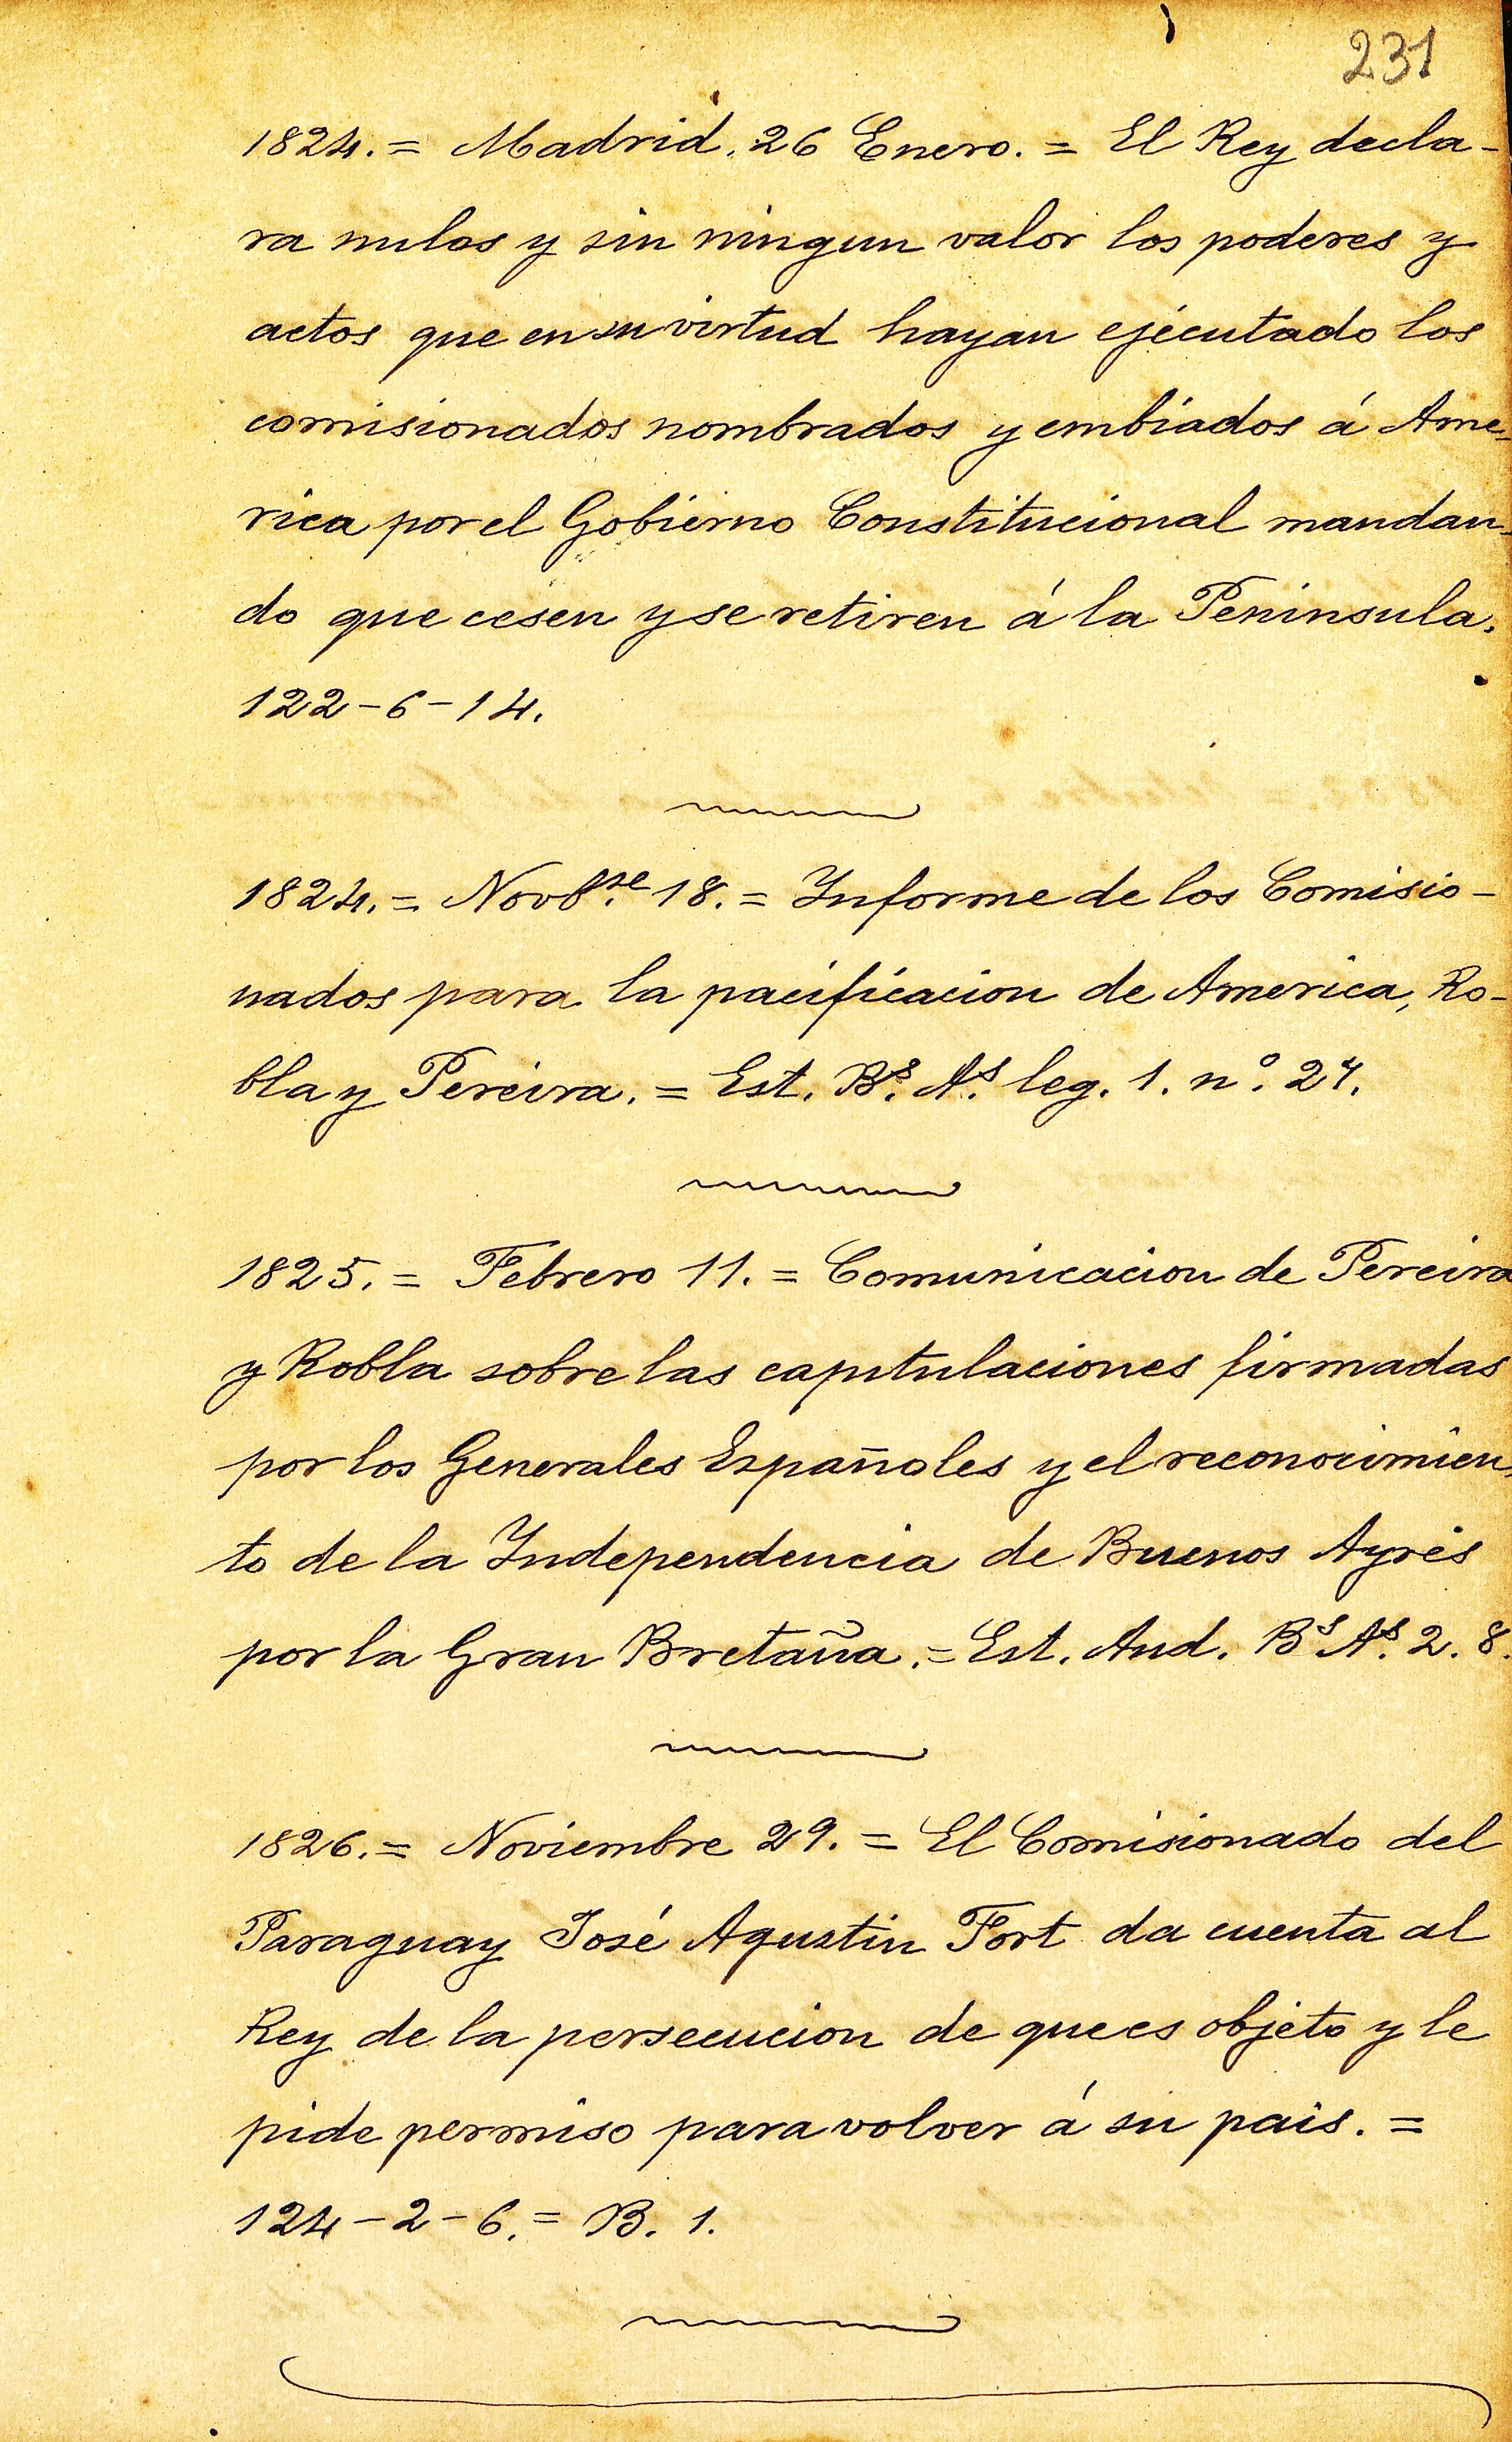 231
1824. = Madrid. 26 Enero. = El Rey decla-
ra nulos y sin ningun valor los poderes y
actos que en su virtud hayan ejecutado los
comisionados nombrados y embiados á Ame-
rica por el Gobierno Constitucional mandan-
do que cesen y se retiren á la Peninsula.
122-6-14.
1824. = Novbre 18. = Informe de los Comisio-
nados para la pacificacion de America, Ro-
bla y Pereira. = Est. Bs. As. leg. 1. nº. 27.
1825. = Febrero 11. = Comunicacion de Pereira
y Robla sobre las capitulaciones firmadas
por los Generales Españoles y el reconocimien-
to de la Independencia de Buenos Ayres
por la Gran Bretaña. = Est. Aud. Bs As. 2. 8.
1826. = Noviembre 29. = El Comisionado del
Paraguay José Agustin Fort da cuenta al
Rey de la persecucion de que es objeto y le
pide permiso para volver á su pais. =
124-2-6. = B. 1.